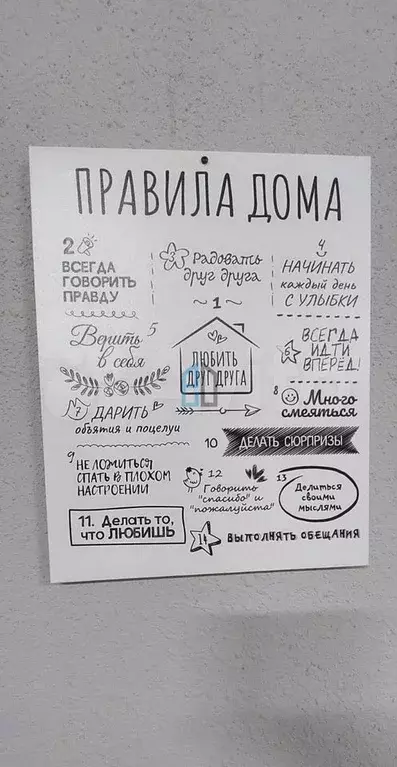 ПРАВИЛА ДОМА
2
ВСЕГДА
ГОВОРИТЬ
ПРАВДУ
3 Радовать
друг друга
4
НАЧИНАТЬ
каждый день
С УЛЫБКИ
~1~
ЛЮБИТЬ
ДРУГ ДРУГА
Верить 5
в себя
6
ВСЕГДА
ИДТИ
ВПЕРЕД!
7 ДАРИТЬ
объятия и поцелуи
8 Много
смеяться
9
НЕ ЛОЖИТЬСЯ
СПАТЬ В ПЛОХОМ
НАСТРОЕНИИ
10 ДЕЛАТЬ СЮРПРИЗЫ
11. Делать то,
что ЛЮБИШЬ
12
Говорить
"спасибо" и
"пожалуйста"
13
Делиться
своими
мыслями
14 ВЫПОЛНЯТЬ ОБЕЩАНИЯ